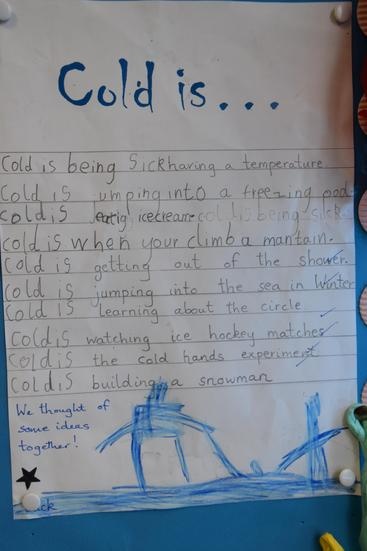 Cold is...
Cold is being Sick having a temperature
Cold is jumping into a freezing pool
Cold is eatig icecream cold is being sick
cold is when your climb a mantain.
Cold is getting out of the shower.
Cold is jumping into the sea in Winter
Cold is learning about the circle
Cold is watching ice hockey matches
Cold is the cold hands experiment
Cold is building a snowman
We thought of
some ideas
together!